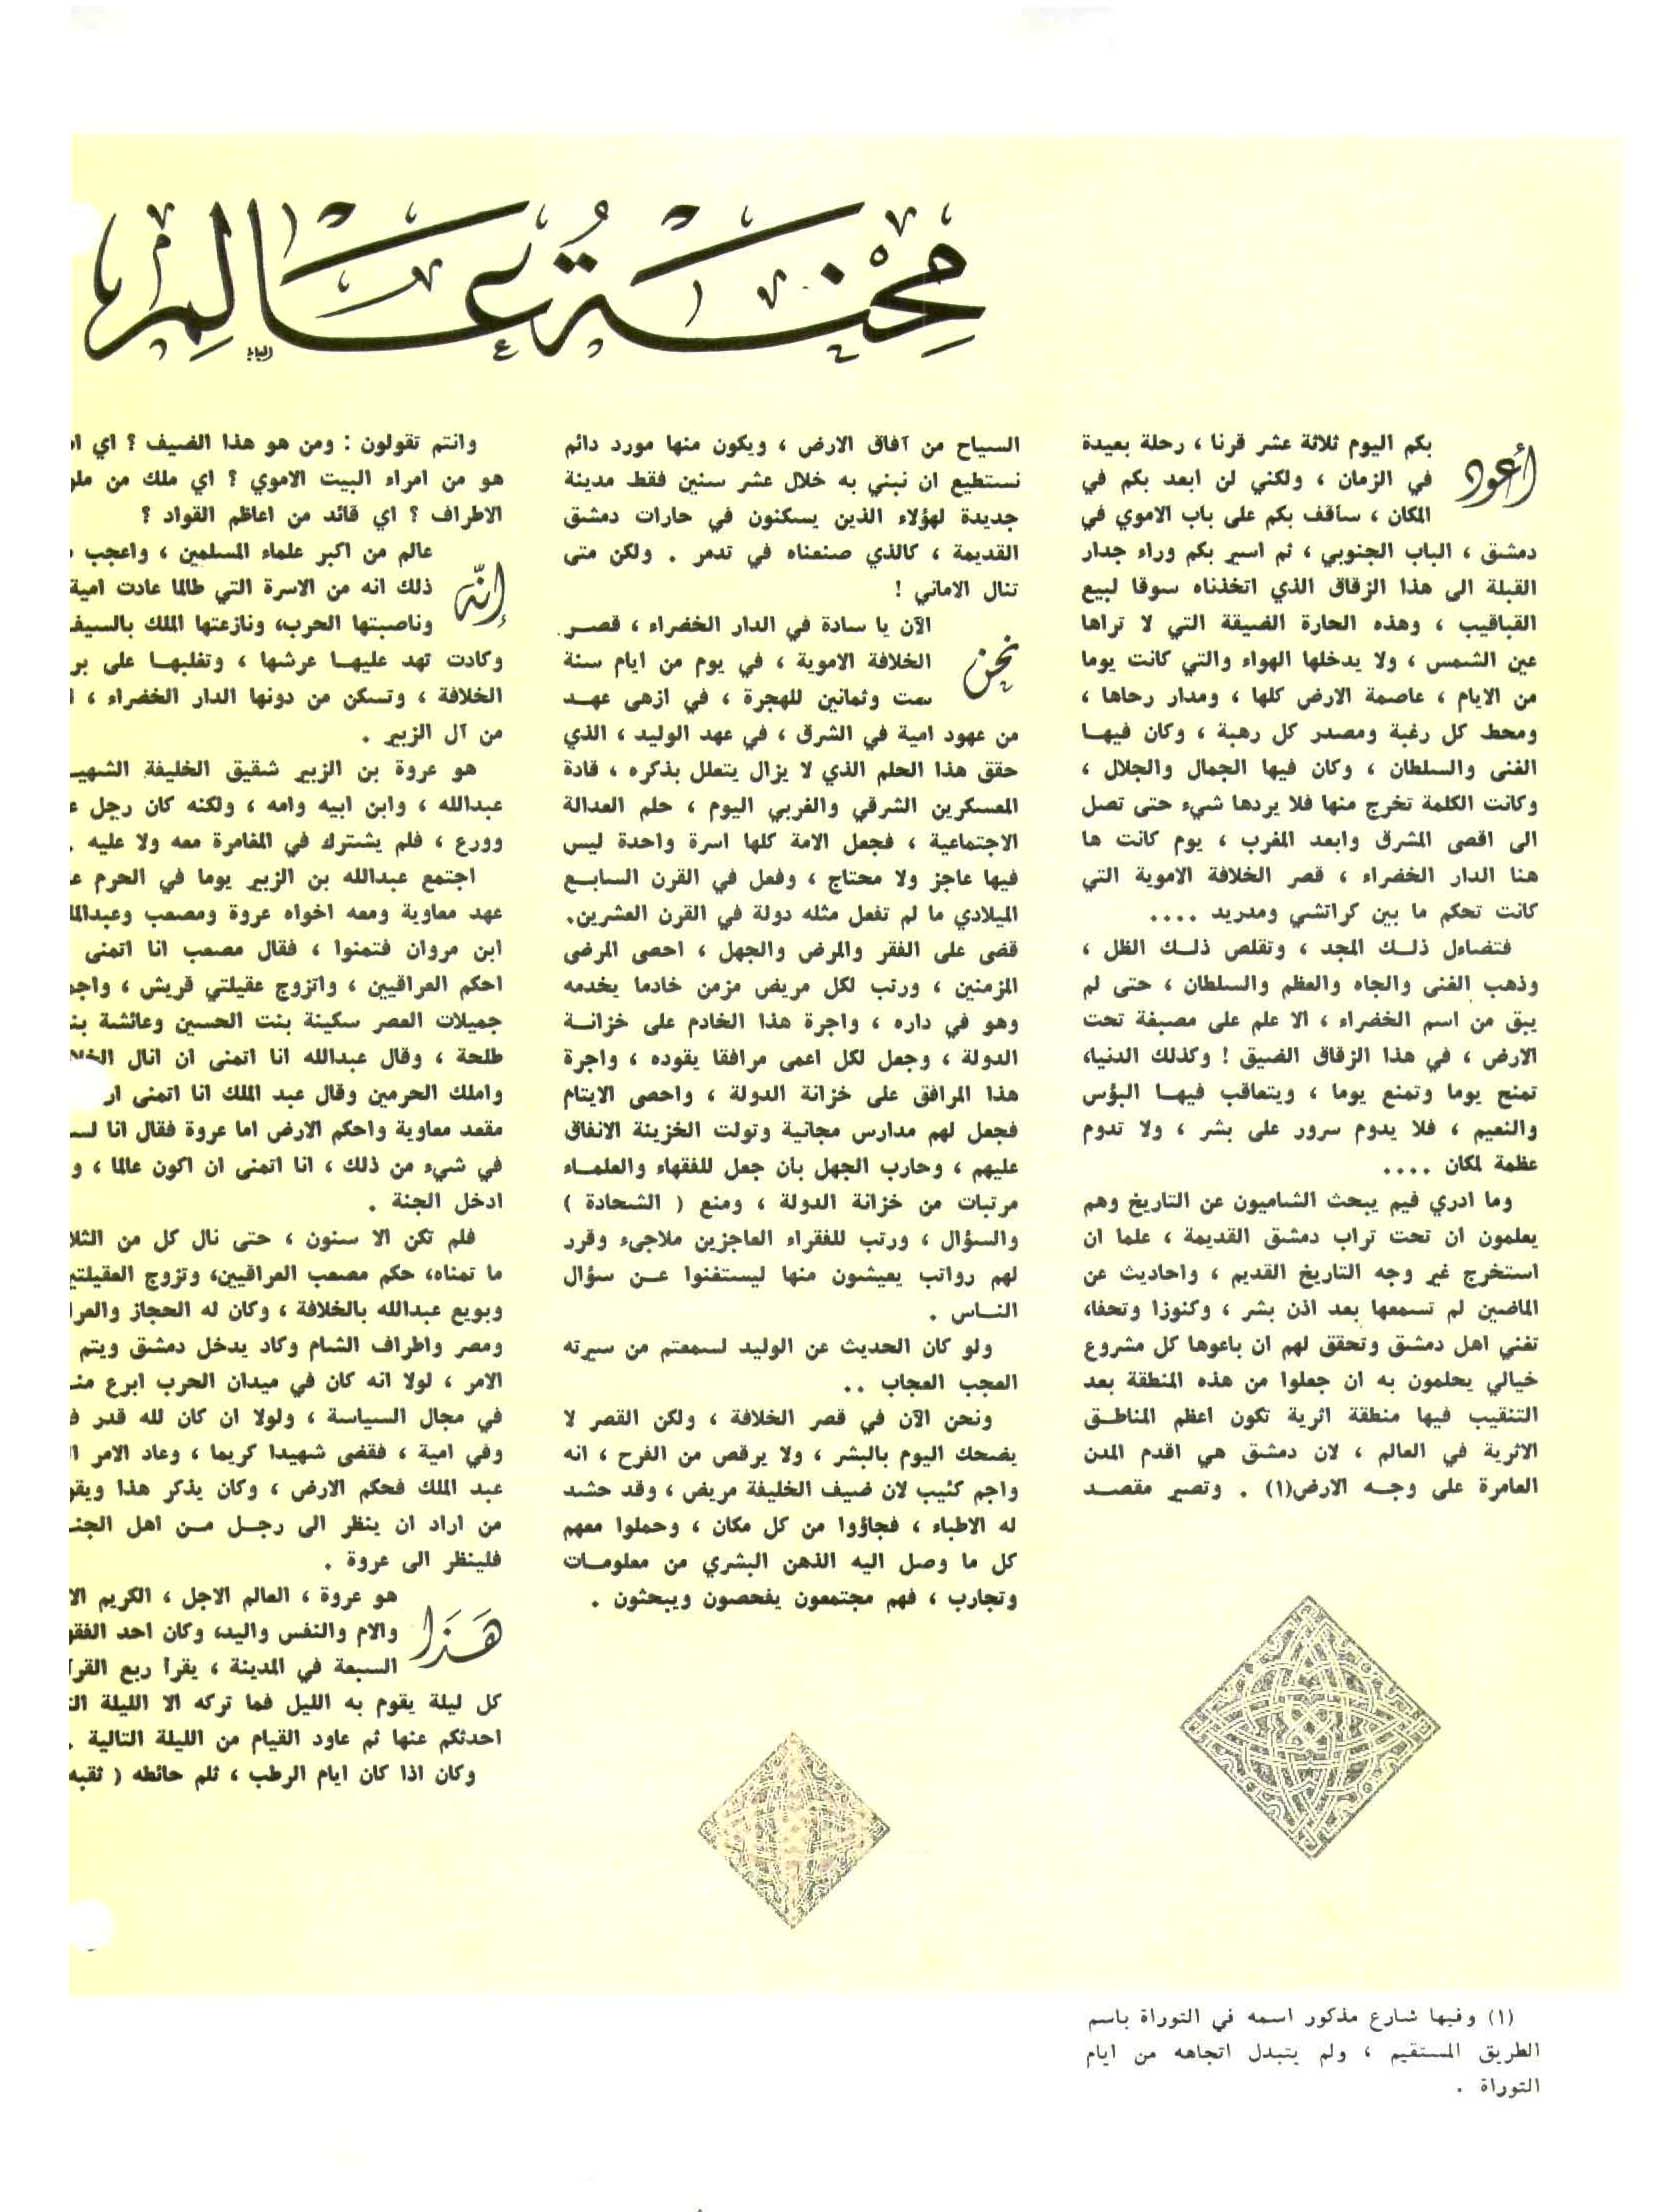 محنة عالم
أعود بكم اليوم ثلاثة عشر قرنا ، رحلة بعيدة
في الزمان ، ولكني لن ابعد بكم في
المكان ، سأقف بكم على باب الاموي في
دمشق ، الباب الجنوبي ، ثم اسير بكم وراء جدار
القبلة الى هذا الزقاق الذي اتخذناه سوقا لبيع
القباقيب ، وهذه الحارة الضيقة التي لا تراها
عين الشمس ، ولا يدخلها الهواء والتي كانت يوما
من الايام ، عاصمة الارض كلها ، ومدار رحاها ،
ومحط كل رغبة ومصدر كل رهبة ، وكان فيهــا
الغنى والسلطان ، وكان فيها الجمال والجلال ،
وكانت الكلمة تخرج منها فلا يردها شيء حتى تصل
الى اقصى المشرق وابعد المغرب ، يوم كانت ها
هنا الدار الخضراء ، قصر الخلافة الاموية التي
كانت تحكم ما بين كراتشي ومدريد ....
فتضاءل ذلــك المجد ، وتقلص ذلــك الظل ،
وذهب الغنى والجاه والعظم والسلطان ، حتى لم
يبق من اسم الخضراء ، الا علم على مصبغة تحت
الارض ، في هذا الزقاق الضيق ! وكذلك الدنيا،
تمنح يوما وتمنع يوما ، ويتعاقب فيهــا البؤس
والنعيم ، فلا يدوم سرور على بشر ، ولا تدوم
عظمة لمكان ....
وما ادري فيم يبحث الشاميون عن التاريخ وهم
يعلمون ان تحت تراب دمشق القديمة ، علما ان
استخرج غير وجه التاريخ القديم ، واحاديث عن
الماضين لم تسمعها بعد اذن بشر ، وكنوزا وتحفا،
تغني اهل دمشق وتحقق لهم ان باعوها كل مشروع
خيالي يحلمون به ان جعلوا من هذه المنطقة بعد
التنقيب فيها منطقة اثرية تكون اعظم المناطــق
الاثرية في العالم ، لان دمشق هي اقدم المدن
العامرة على وجــه الارض(١) . وتصير مقصــد
السياح من آفاق الارض ، ويكون منها مورد دائم
نستطيع ان نبني به خلال عشر سنين فقط مدينة
جديدة لهؤلاء الذين يسكنون في حارات دمشق
القديمة ، كالذي صنعناه في تدمر . ولكن متى
تنال الاماني !
نحن الآن يا سادة في الدار الخضراء ، قصــر
الخلافة الاموية ، في يوم من ايام سنة
ست وثمانين للهجرة ، في ازهى عهــد
من عهود امية في الشرق ، في عهد الوليد ، الذي
حقق هذا الحلم الذي لا يزال يتعلل بذكره ، قادة
المعسكرين الشرقي والغربي اليوم ، حلم العدالة
الاجتماعية ، فجعل الامة كلها اسرة واحدة ليس
فيها عاجز ولا محتاج ، وفعل في القرن السابــع
الميلادي ما لم تفعل مثله دولة في القرن العشرين.
قضى على الفقر والمرض والجهل ، احصى المرضى
المزمنين ، ورتب لكل مريض مزمن خادما يخدمه
وهو في داره ، واجرة هذا الخادم على خزانــة
الدولة ، وجعل لكل اعمى مرافقا يقوده ، واجرة
هذا المرافق على خزانة الدولة ، واحصى الايتام
فجعل لهم مدارس مجانية وتولت الخزينة الانفاق
عليهم ، وحارب الجهل بان جعل للفقهاء والعلمــاء
مرتبات من خزانة الدولة ، ومنع ( الشحادة )
والسؤال ، ورتب للفقراء العاجزين ملاجىء وقرر
لهم رواتب يعيشون منها ليستغنوا عــن سؤال
النــاس .
ولو كان الحديث عن الوليد لسمعتم من سيرته
العجب العجاب ..
ونحن الآن في قصر الخلافة ، ولكن القصر لا
يضحك اليوم بالبشر ، ولا يرقص من الفرح ، انه
واجم كئيب لان ضيف الخليفة مريض ، وقد حشد
له الاطباء ، فجاؤوا من كل مكان ، وحملوا معهم
كل ما وصل اليه الذهن البشري من معلومــات
وتجارب ، فهم مجتمعون يفحصون ويبحثون .
وانتم تقولون : ومن هو هذا الضيف ؟ اي
هو من امراء البيت الاموي ؟ اي ملك من
الاطراف ؟ اي قائد من اعاظم القواد ؟
إنّه عالم من اكبر علماء المسلمين ، واعجب
ذلك انه من الاسرة التي طالما عادت امية
وناصبتها الحرب، ونازعتها الملك بالسيف
وكادت تهد عليهــا عرشها ، وتغلبهــا على
الخلافة ، وتسكن من دونها الدار الخضراء ،
من آل الزبير .
هو عروة بن الزبير شقيق الخليفة
عبدالله ، وابن ابيه وامه ، ولكنه كان رجل
وورع ، فلم يشترك في المغامرة معه ولا عليه .
اجتمع عبدالله بن الزبير يوما في الحرم
عهد معاوية ومعه اخواه عروة ومصعب
ابن مروان فتمنوا ، فقال مصعب انا اتمنى
احكم العراقيين ، واتزوج عقيلتي قريش ،
جميلات العصر سكينة بنت الحسين وعائشة
طلحة ، وقال عبدالله انا اتمنى ان انال
واملك الحرمين وقال عبد الملك انا اتمنى
مقعد معاوية واحكم الارض اما عروة فقال انا
في شيء من ذلك ، انا اتمنى ان اكون عالما ، و
ادخل الجنة .
فلم تكن الا سنون ، حتى نال كل من
ما تمناه، حكم مصعب العراقيين، وتزوج
وبويع عبدالله بالخلافة ، وكان له الحجاز
ومصر واطراف الشام وكاد يدخل دمشق ويتم
الامر ، لولا انه كان في ميدان الحرب ابرع
في مجال السياسة ، ولولا ان كان لله قدر
وفي امية ، فقضى شهيدا كريما ، وعاد الامر
عبد الملك فحكم الارض ، وكان يذكر هذا
من اراد ان ينظر الى رجــل مــن اهل
فلينظر الى عروة .
هَذَا هو عروة ، العالم الاجل ، الكريم
والام والنفس واليد، وكان احد
السبعة في المدينة ، يقرأ ربع
كل ليلة يقوم به الليل فما تركه الا الليلة
احدثكم عنها ثم عاود القيام من الليلة التالية .
وكان اذا كان ايام الرطب ، ثلم حائطه ( ثقبه
(١) وفيها شارع مذكور اسمه في التوراة باسم
الطريق المستقيم ، ولم يتبدل اتجاهه من ايام
التوراة .